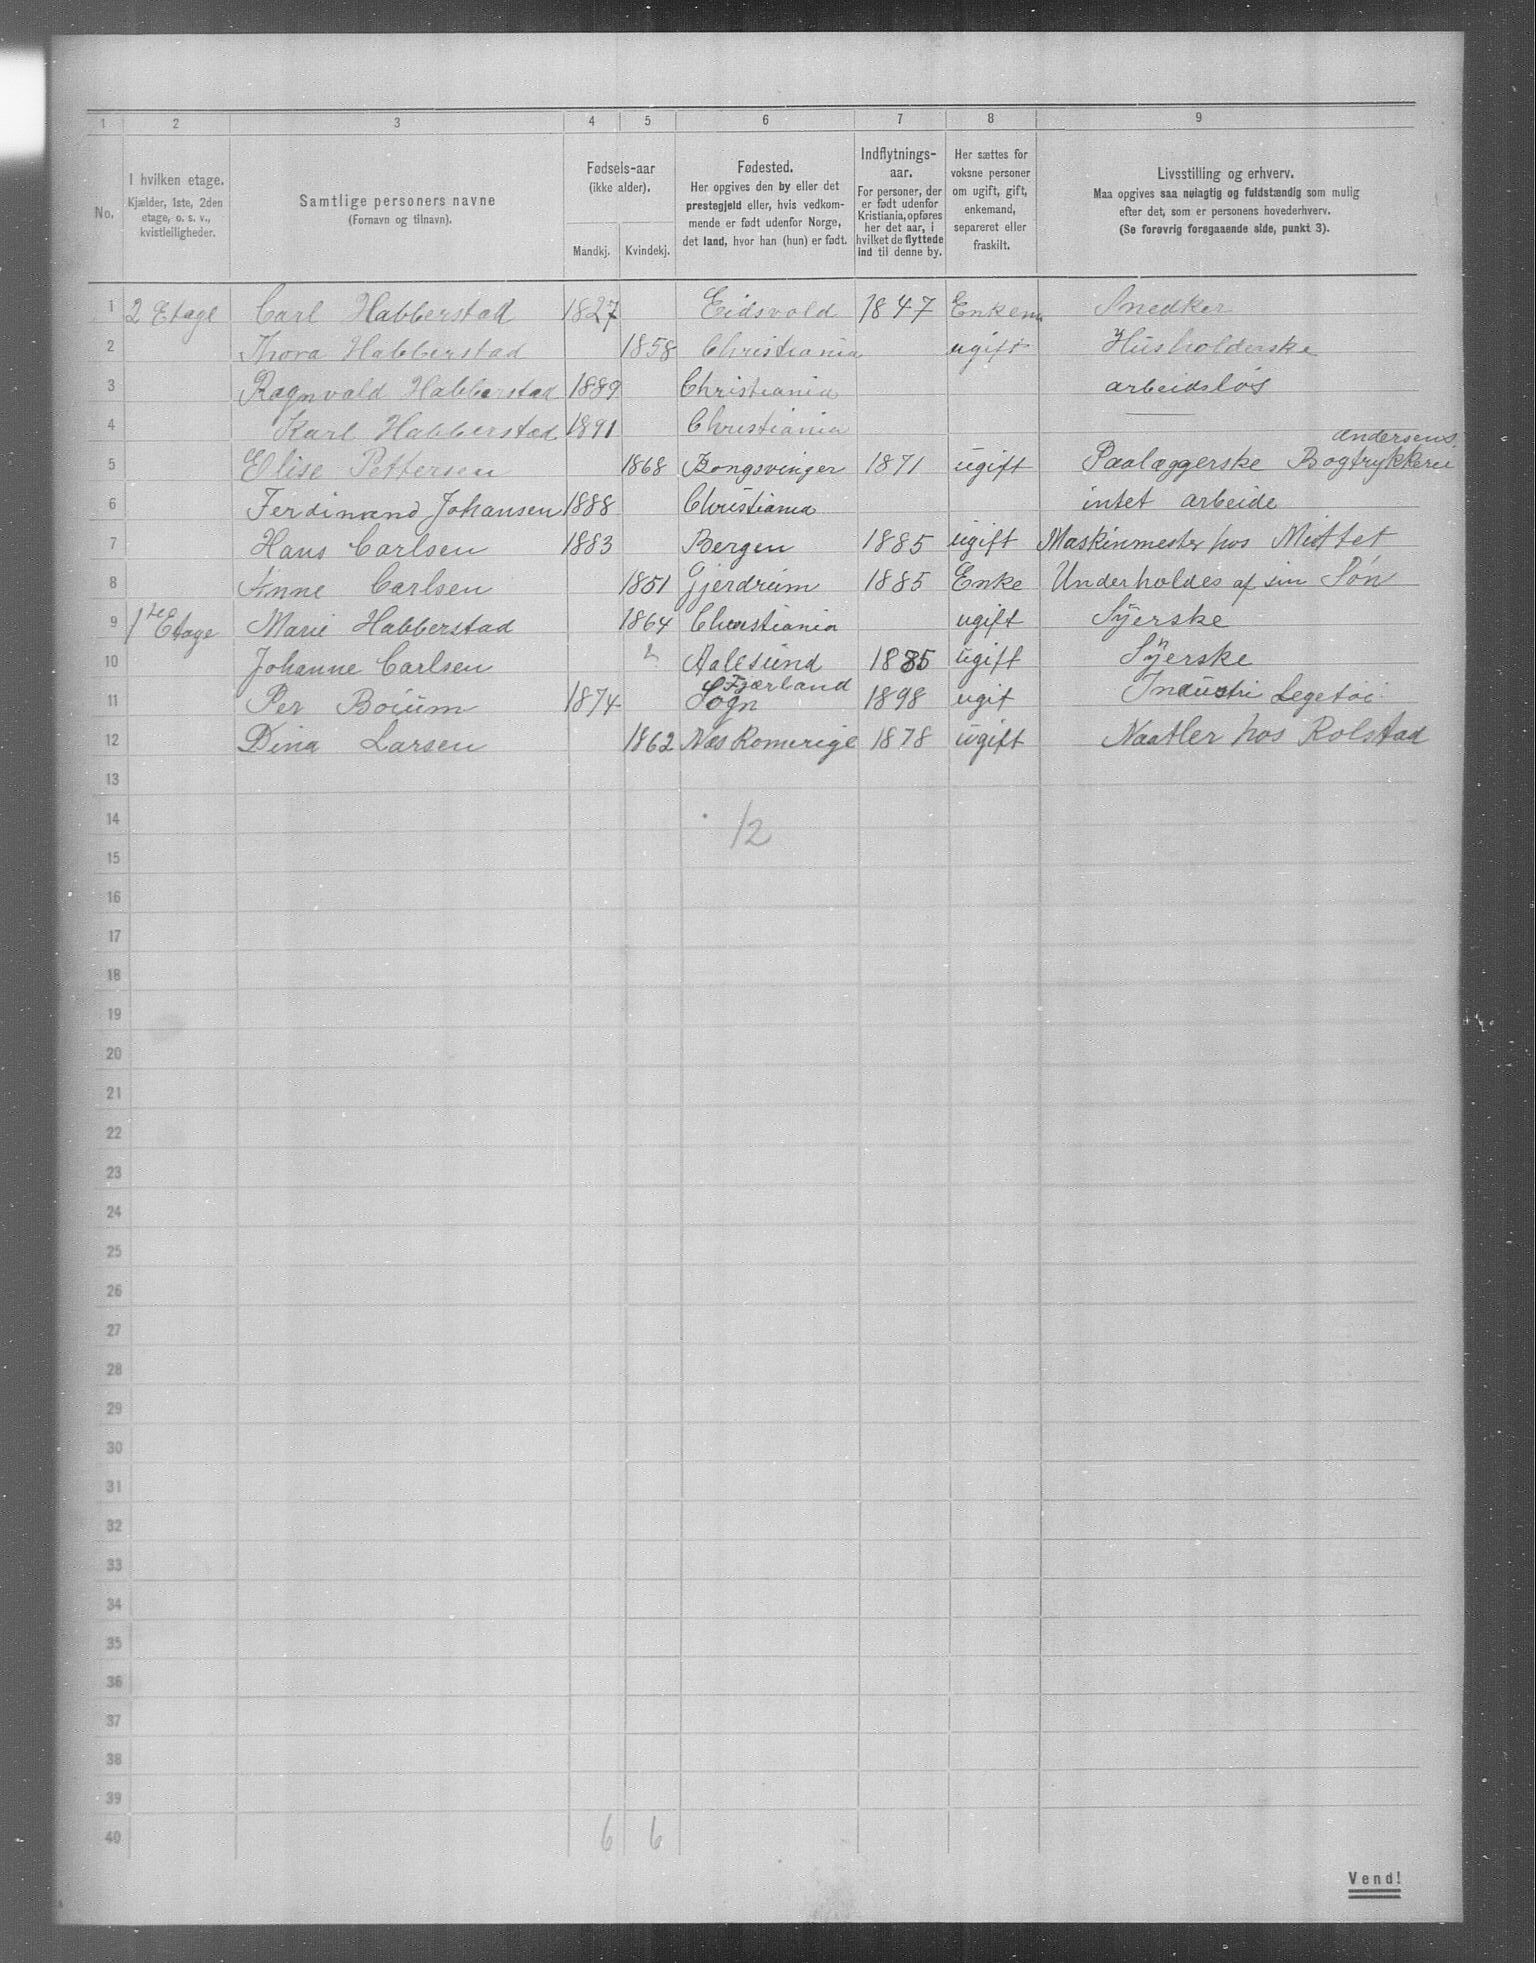 1 2 3 4 5 6 7 8 9
No.
I hvilken etage.
Kjælder, 1ste, 2den
etage, o. s. v.,
kvistleiligheder.
Samtlige personers navne
(Fornavn og tilnavn).
Fødsels-aar
(ikke alder).
Mandkj. Kvindekj.
Fødested.
Her opgives den by eller det
prestegjeld eller, hvis vedkom-
mende er født udenfor Norge,
det land, hvor han (hun) er født.
Indflytnings-
aar.
For personer, der
er født udenfor
Kristiania, opføres
her det aar, i
hvilket de flyttede
ind til denne by.
Her sættes for
voksne personer
om ugift, gift,
enkemand,
separeret eller
fraskilt.
Livsstilling og erhverv.
Maa opgives saa nøiagtig og fuldstændig som mulig
efter det, som er personens hovederhverv.
(Se forøvrig foregaaende side, punkt 3).
1 2 Etage Carl Habberstad 1827 Eidsvold 1847 Enkem Snedker
2 Thora Habberstad 1858 Christiania ugift Husholderske
3 Ragnvald Habberstad 1889 Christiania arbeidsløs
4 Karl Habberstad 1891 Christiania —
5 Elise Pettersen 1868 Kongsvinger 1871 ugift Paalæggerske Andersens Bogtrykkeri
6 Ferdinand Johansen 1888 Christiania intet arbeide
7 Hans Carlsen 1883 Bergen 1885 ugift Maskinmester hos Mittet
8 Anne Carlsen 1851 Gjerdrum 1885 Enke Underholdes af sin Søn
9 1ste Etage Marie Habberstad 1864 Christiania ugift Syerske
10 Johanne Carlsen Aalesund 1885 ugift Syerske
11 Per Boium 1874 Fjærland Sogn 1898 ugift Industri Legetøi
12 Dina Larsen 1862 Næs Romerige 1878 ugift Naatler hos Rolstad
13
14 12
15
16
17
18
19
20
21
22
23
24
25
26
27
28
29
30
31
32
33
34
35
36
37
38
39
40 6 6
Vend!